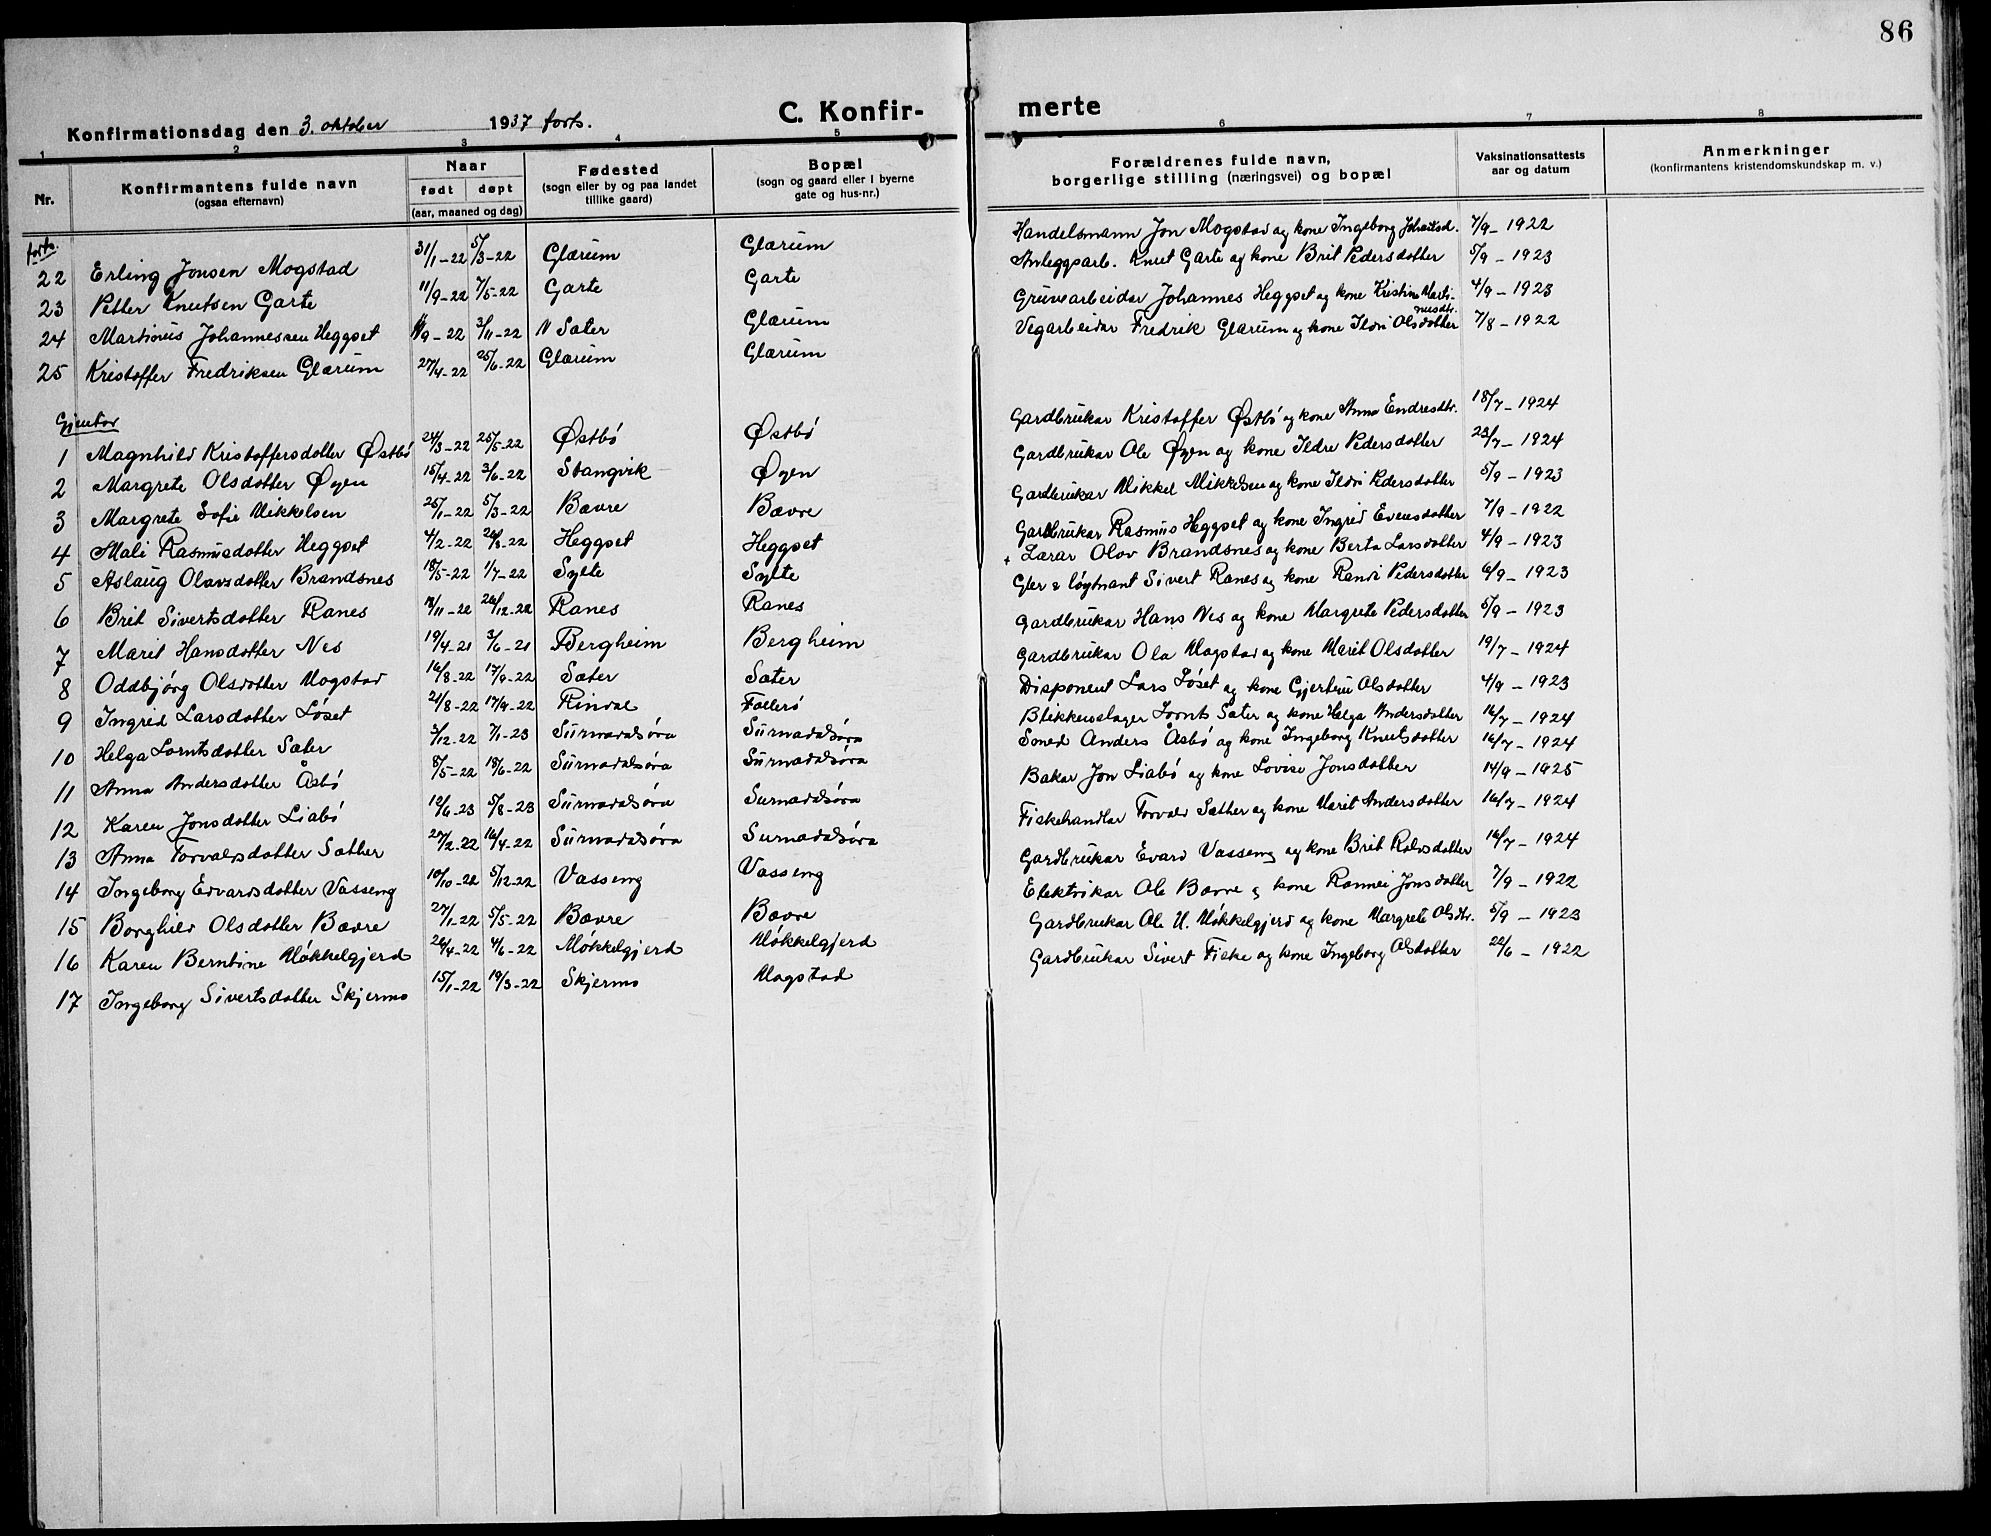 86
C. Konfir- merte
Konfirmationsdag den 3. oktober 1937 forts.
1 2 3 4 5 6 7 8
Nr. Konfirmantens fulde navn (ogsaa efternavn) Naar født døpt (aar, maaned og dag) Fødested (sogn eller by og paa landet tillike gaard) Bopæl (sogn og gaard eller i byerne gate og hus-nr.) Forældrenes fulde navn, borgerlige stilling (næringsvei) og bopæl Vaksinationsattests aar og datum Anmerkninger (konfirmantens kristendomskundskap m. v.)
forts.
22 Erling Jonsen Mogstad 31/1-22 5/3-22 Glærum Glærum Handelsmann Jon Mogstad og kone Ingeborg 7/9-1922
23 Petter Knutsen Garte 11/9-22 7/5-22 Garte Garte Anleggsarb. Knut Garte og kone Brit Pedersdotter 5/9-1923
24 Martinus Johannessen Heggset 9-22 3/11-22 N Sæter Glærum Gruvearbeidar Johannes Heggset og kone Kristine Martinusdtr. 4/9-1923
25 Kristoffer Fredriksen Glærum 27/4-22 25/6-22 Glærum Glærum Vegarbeidar Fredrik Glærum og kone Ildri Olsdotter 7/8-1922
Gjentor
1 Magnhild Kristoffersdotter Østbö 24/3-22 25/5-22 Østbö Østbö Gardbrukar Kristoffer Østbö og kone Anna Endresdtr. 18/7-1924
2 Margrete Olsdotter Øyen 15/4-22 3/6-22 Stangvik Øyen Gardbrukar Ole Øyen og kone Ildre Pedersdotter 23/7-1924
3 Margrete Sofie Mikkelsen 25/1-22 5/3-22 Bævre Bævre Gardbrukar Mikkel Mikkelsen og kone Ildri Pedersdotter 5/9-1923
4 Mali Rasmusdotter Heggset 4/2-22 -22 Heggset Heggset Gardbrukar Rasmus Heggset og kone Ingrid Evensdotter 7/9-1922
5 Aslaug Olavsdotter Brandsnes 18/5-22 1/7-22 Sylte Sylte + Lærar Olov Brandsnes og kone Berta Larsdotter 4/9-1923
6 Brit Sivertsdotter Ranes /11-22 26/12-22 Ranes Ranes løytnant Sivert Ranes og kone Randi Pedersdotter 6/9-1923
7 Marit Hansdotter Nes 19/4-21 3/6-21 Bergheim Bergheim Gardbrukar Hans Nes og kone Margrete Pedersdotter 5/9-1923
8 Oddbjörg Olsdotter Mogstad 16/8-22 17/9-22 Sæter Sæter Gardbrukar Ola Mogstad og kone Marit Olsdotter 19/7-1924
9 Ingrid Larsdotter Löset 21/8-22 17/9-22 Rindal Follerö Disponent Lars Löset og kone Gjertrui Olsdotter 4/9-1923
10 Helga Lorntsdotter Sæter 3/12-22 7/1-23 Surnadalsöra Surnadalsöra Blikkenslager Lornts Sæter og kone Helga Andersdotter 16/7-1924
11 Anna Andersdotter Åsbö 8/5-22 18/6-22 Surnadalsöra Surnadalsöra Smed Anders Åsbö og kone Ingeborg Knutsdotter 16/7-1924
12 Karen Jonsdotter Liabö 12/6-23 5/8-23 Surnadalsöra Surnadalsöra Bakar Jon Liabö og kone Lovise Jonsdotter 14/9-1925
13 Anna Torvaldsdotter Sæther 20/2-22 16/4-22 Surnadalsöra Surnadalsöra Fiskehandlar Torvald Sæther og kone Marit Andersdotter 16/7-1924
14 Ingeborg Edvardsdotter Vasseng 10/10-22 5/12-22 Vasseng Vasseng Gardbrukar Evard Vasseng og kone Brit Rolvsdotter 16/7-1924
15 Borghild Olsdotter Bævre 27/1-22 5/5-22 Bævre Bævre Elektrikar Ole Bævre og kone Rannei Jonsdotter 7/9-1922
16 Karen Berntine Mökkelgjerd 26/4-22 4/6-22 Mökkelgjerd Mökkelgjerd Gardbrukar Ole M. Mökkelgjerd og kone Margrete Olsdtr. 5/9-1923
17 Ingeborg Sivertsdotter Skjermo 15/1-22 19/3-22 Skjermo Mogstad Gardbrukar Sivert Fiske og kone Ingeborg Olsdotter 22/6-1922